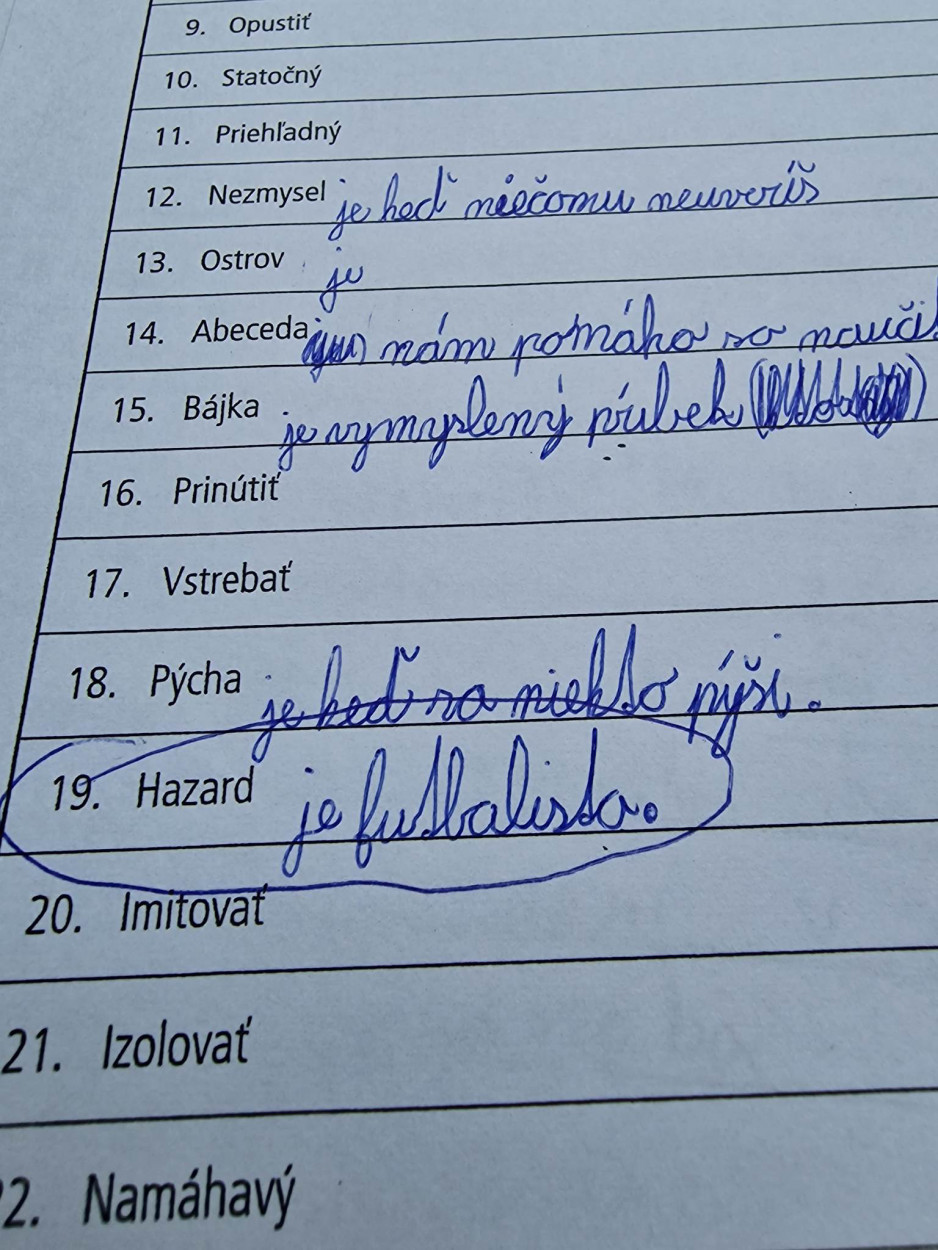 9. Opustiť
10. Statočný
11. Priehľadný
12. Nezmysel je keď niečomu neuveríš
13. Ostrov je
14. Abeceda nám pomáha sa naučiť
15. Bájka je vymyslený príbeh
16. Prinútiť
17. Vstrebať
18. Pýcha je keď sa niekto pýši.
19. Hazard je futbalista.
20. Imitovať
21. Izolovať
22. Namáhavý